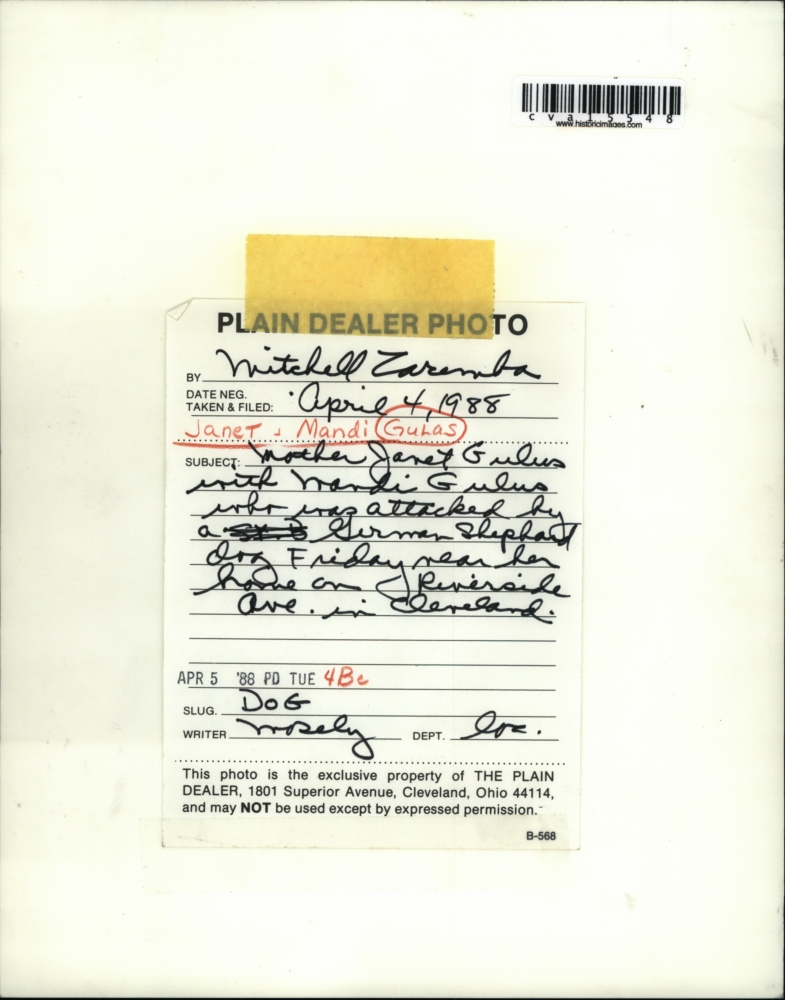 cva15548
www.historicimages.com
PLAIN DEALER PHOTO
BY Mitchell Zaremba
DATE NEG.
TAKEN & FILED: April 4, 1988
Janet & Mandi Gulas
SUBJECT: Mother Janet Gulus
with Mandi Gulus
who was attacked by
a German Shephard
dog Friday near her
home on Riverside
Ave. in Cleveland.
APR 5 '88 PD TUE 4Bc
SLUG. DOG
WRITER Mosely DEPT. loc.
This photo is the exclusive property of THE PLAIN
DEALER, 1801 Superior Avenue, Cleveland, Ohio 44114,
and may NOT be used except by expressed permission.
B-568